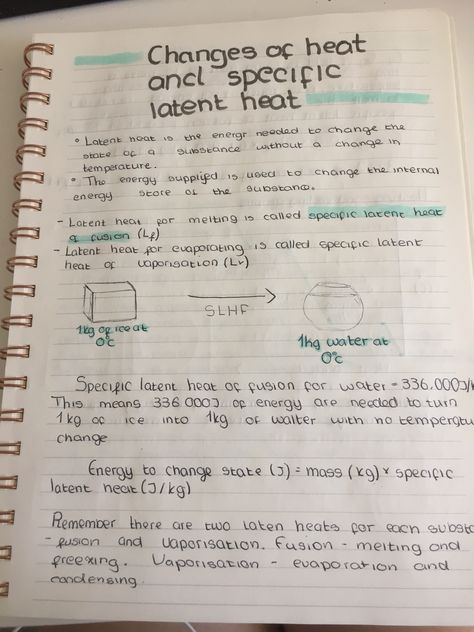 Changes of heat
and specific
latent heat
° Latent heat is the energr needed to change the
state of a substance without a change in
temperature.
° The energy supplied is used to change the internal
energy store of the substanc.
- Latent heat for melting is called specific latent heat
of fusion (Lf)
- Latent heat for evaporating is called specific latent
heat of vaporisation (Lv)
SLHF
1kg of ice at
0°c
1kg water at
0°c
Specific latent heat of fusion for water = 336.000J/
This means 336 000J of energy are needed to turn
1kg of ice into 1kg of walter with no temperatu
change
Energy to change state (J) = mass (kg) × specific
latent heat (J/kg)
Remember there are two laten heats for each subst
- fusion and vaporisation. Fusion - melting and
freezing. Vaporisation - evaporation and
condensing.